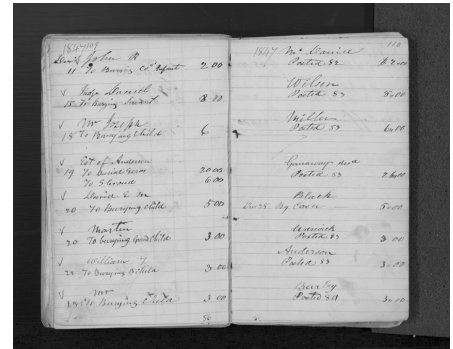 1847 109
John R
11 To Burying Co Infant 2.00
√ Judge Daniel
18 To Burying Servant 8.00
√ Mr Joseph
18 To Burying Child 6
√ Est of Anderson
19 To Burial 20.00
To 6.00
√ David E M
20 To Burying Child 5.00
√ Martin
20 To burying Child 3.00
√ William
22 To Burying B Child 3.00
√ Mr
To Burying Child 3.00
56
110
1847 Mc Daniel
Posted 82 2.00
Wilson
Posted 82 8.00
Miller
Posted 83 6.00
Posted 83 26.00
Black
By Cash 5.00
Warwick
Posted 83 3.00
Anderson
Posted 83 3.00
Posted 84 3.00